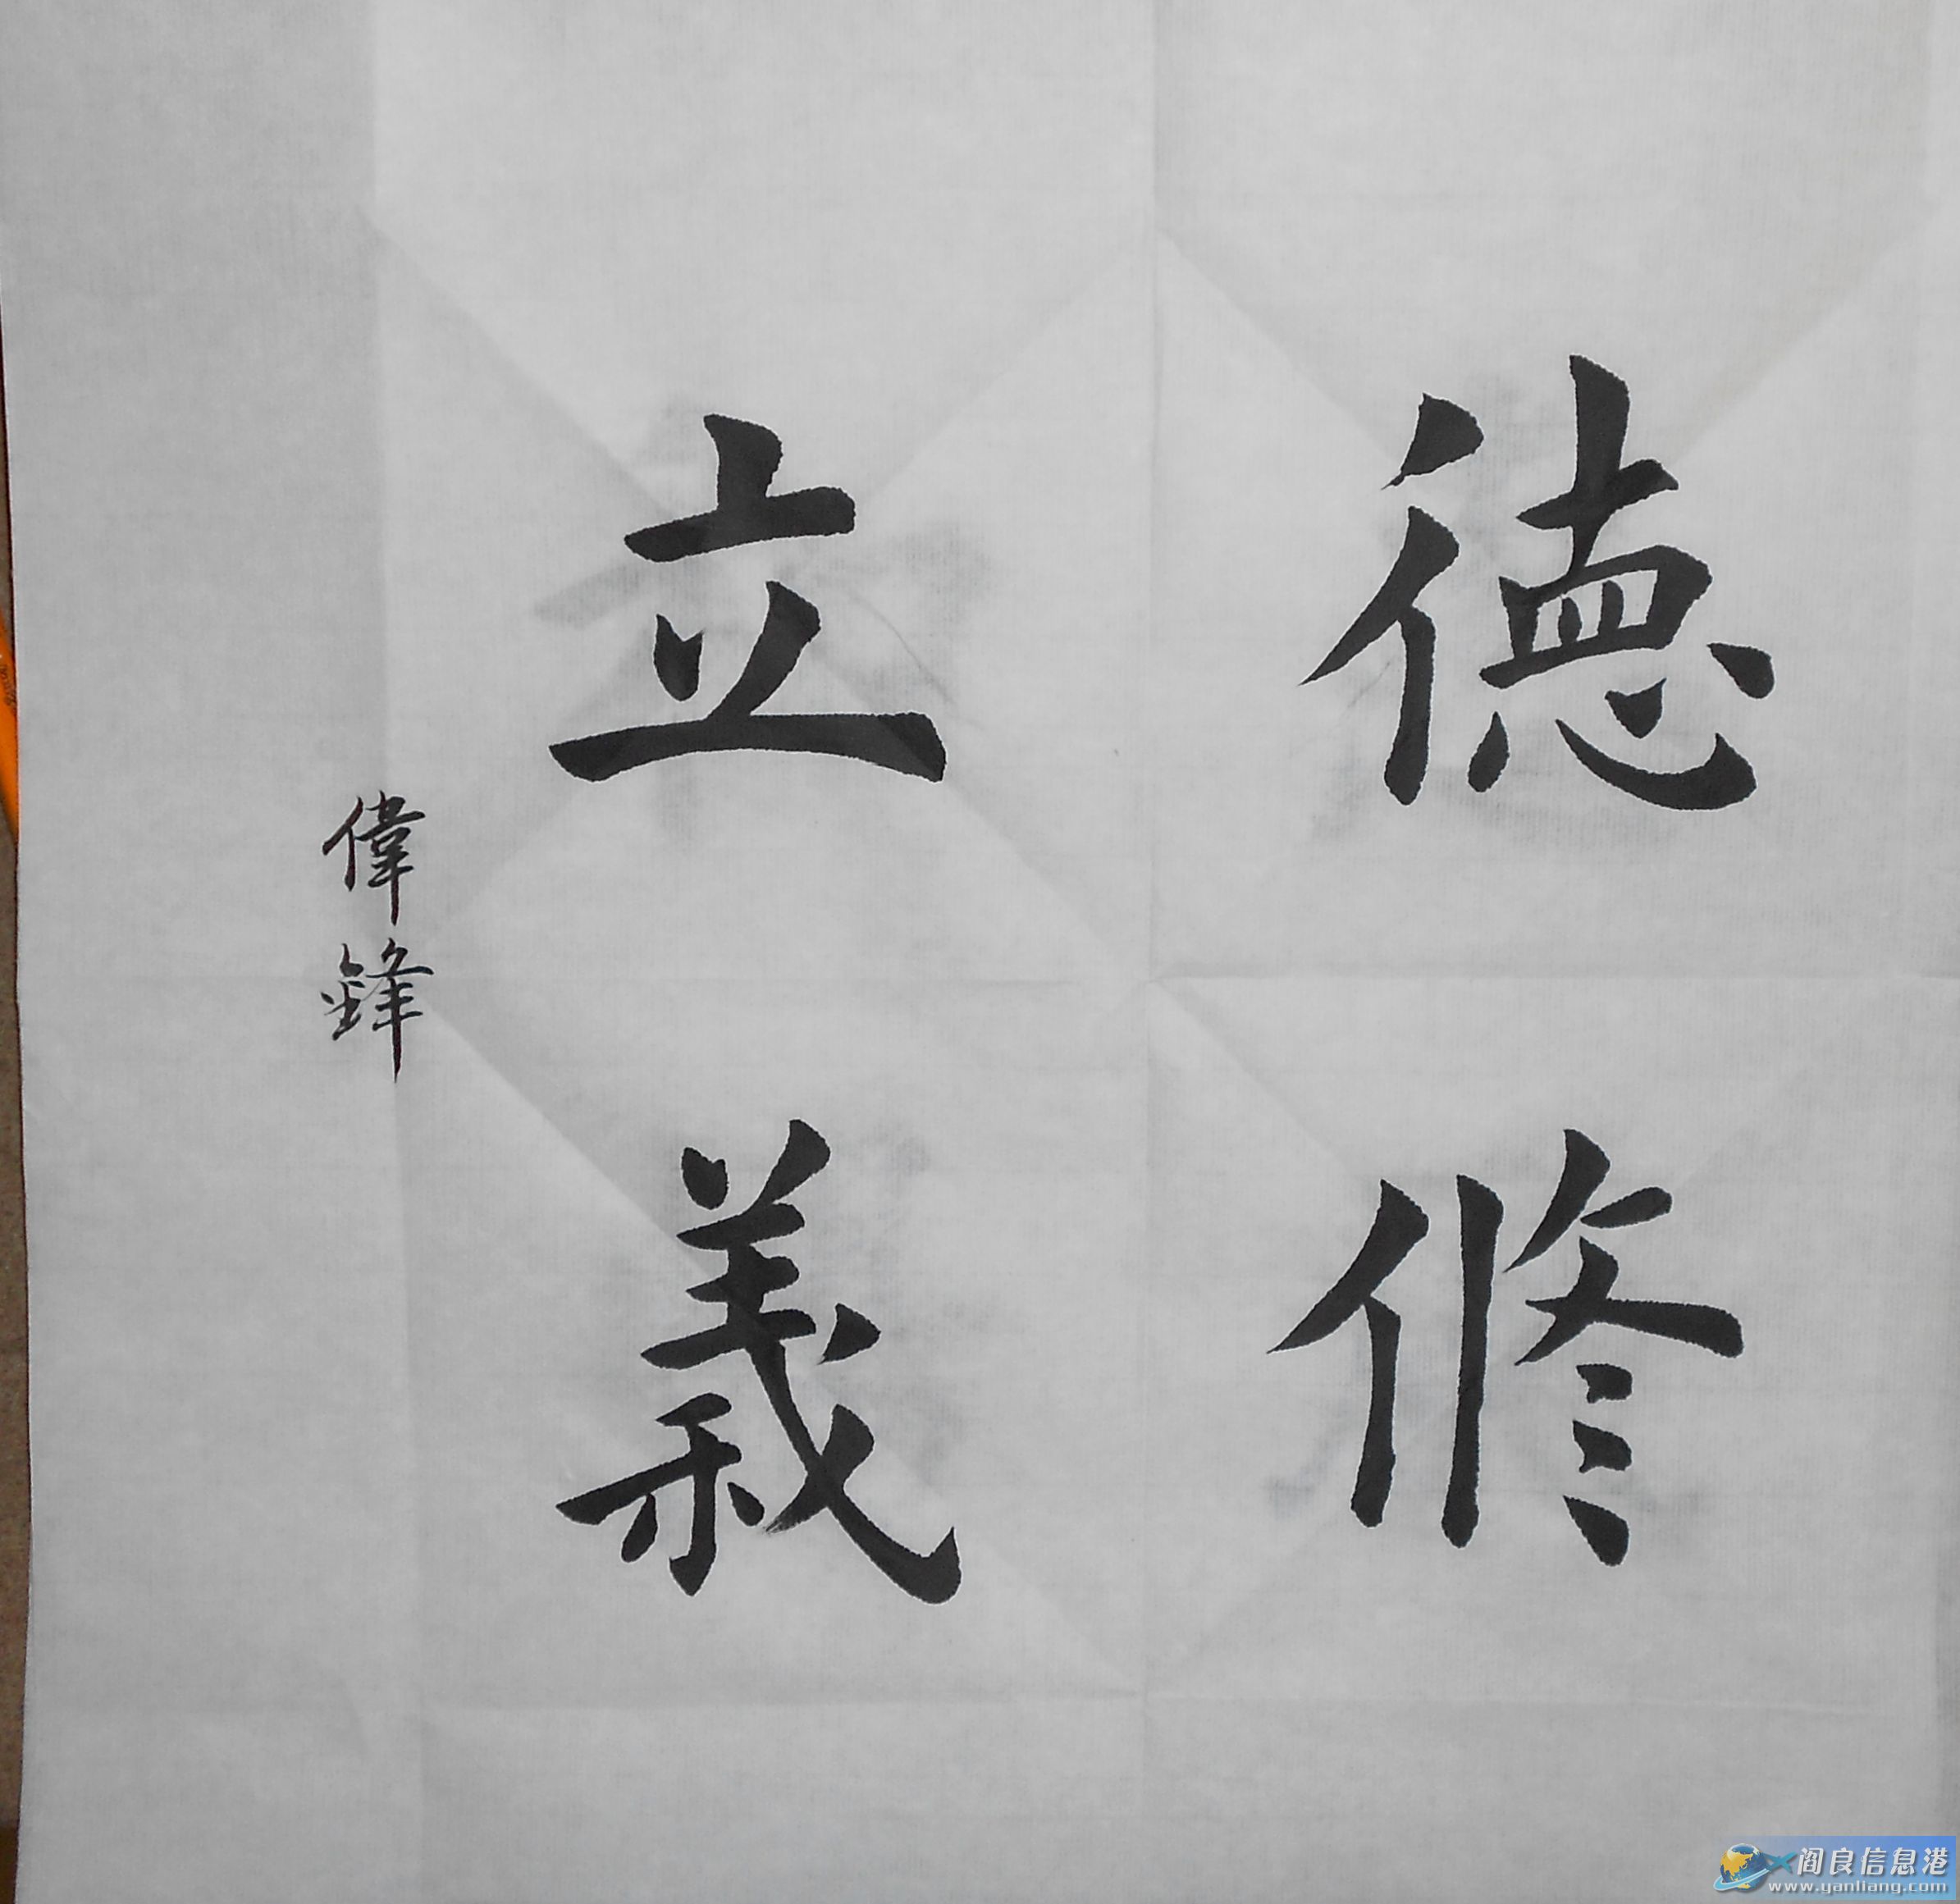 德修
立義
偉鋒
阎良信息港
www.yanliang.com